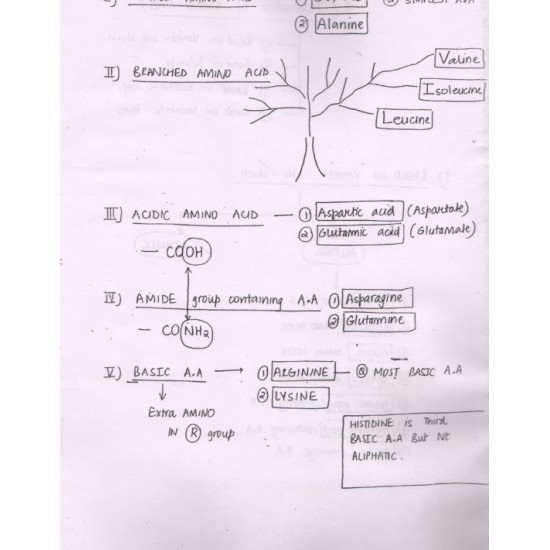 ② Alanine
II) BRANCHED AMINO ACID
Valine
Isoleucine
Leucine
III) ACIDIC AMINO ACID — ① Aspartic acid (Aspartate)
② Glutamic acid (Glutamate)
— COOH
IV) AMIDE group containing A.A ① Asparagine
② Glutamine
— CONH2
V) BASIC A.A → ① ARGININE — MOST BASIC A.A
② LYSINE
Extra AMINO
IN Ⓡ group
HISTIDINE is Third
BASIC A.A But Nt
ALIPHATIC.